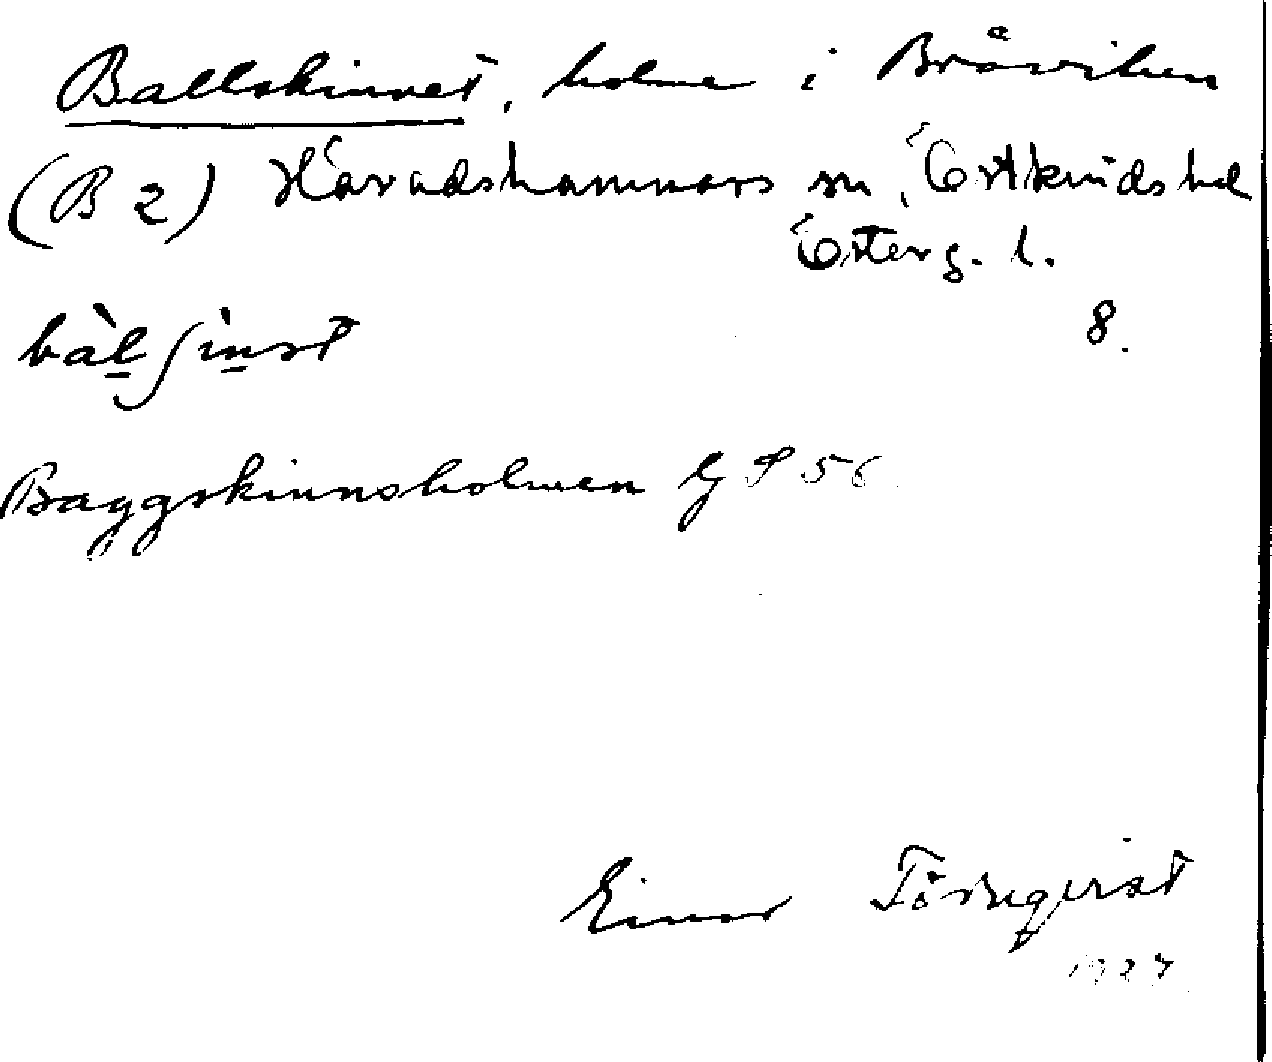 Ballskinnet, holme i Bråviken
(B 2) Häradshammars sn, Östkinds hd
Österg. l.
8.
bàl̠ʃìn̠ət
Baggskinnsholmen Gs 56
Einar Törnqvist
1927